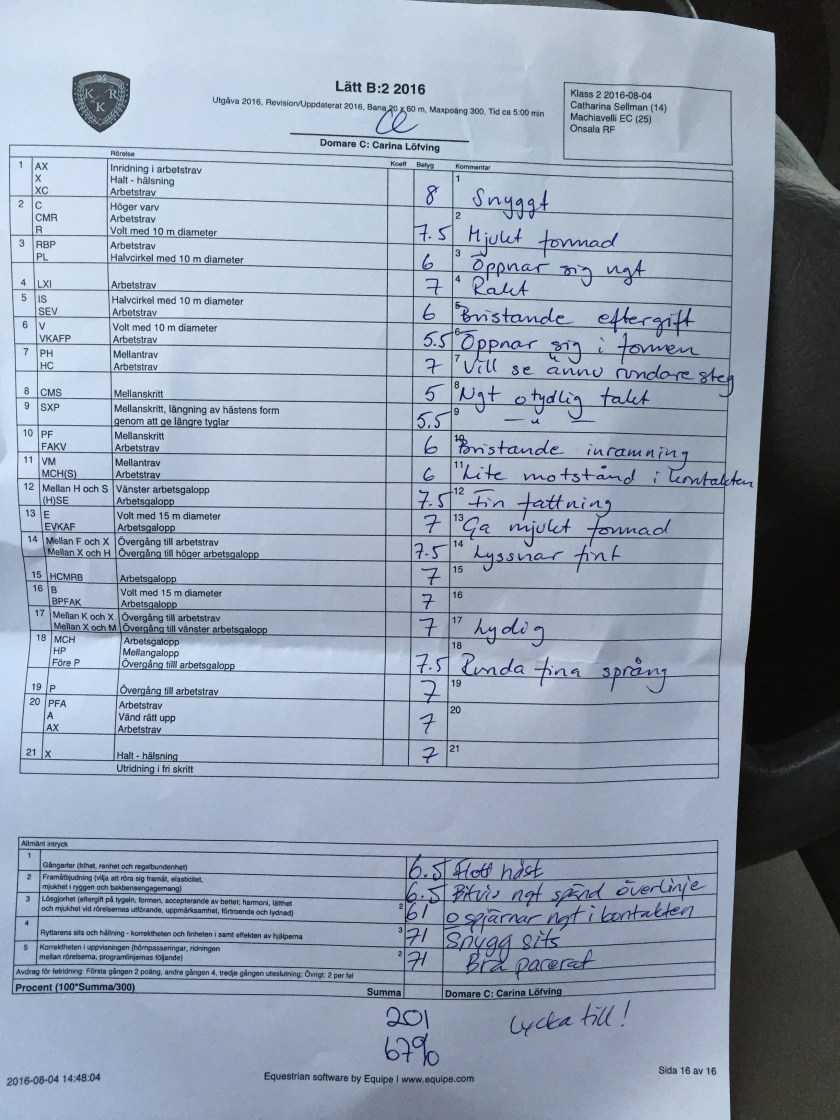 K R
K
Lätt B:2 2016
Utgåva 2016, Revision/Uppdaterat 2016, Bana 20 x 60 m, Maxpoäng 300, Tid ca 5:00 min
Domare C: Carina Löfving
Klass 2 2016-08-04
Catharina Sellman (14)
Machiavelli EC (25)
Onsala RF
Rörelse Koeff Betyg Kommentar
1 AX Inridning i arbetstrav 1
X Halt - hälsning
XC Arbetstrav 8 Snyggt
2 C Höger varv 2
CMR Arbetstrav
R Volt med 10 m diameter 7.5 Mjukt formad
3 RBP Arbetstrav 3
PL Halvcirkel med 10 m diameter 6 Öppnar sig ngt
4 LXI Arbetstrav 7 4 Rakt
5 IS Halvcirkel med 10 m diameter 5
SEV Arbetstrav 6 Bristande eftergift
6 V Volt med 10 m diameter 6
VKAFP Arbetstrav 5.5 Öppnar sig i formen
7 PH Mellantrav 7
HC Arbetstrav 7 Vill se ännu rundare steg
8 CMS Mellanskritt 5 8 Ngt otydlig takt
9 SXP Mellanskritt, längning av hästens form 9
genom att ge längre tyglar 5.5 — " —
10 PF Mellanskritt 10
FAKV Arbetstrav 6 Bristande inramning
11 VM Mellantrav 11
MCH(S) Arbetstrav 6 Lite motstånd i kontakten
12 Mellan H och S Vänster arbetsgalopp 12
(H)SE Arbetsgalopp 7.5 Fin fattning
13 E Volt med 15 m diameter 13
EVKAF Arbetsgalopp 7 Ga mjukt formad
14 Mellan F och X Övergång till arbetstrav 14
Mellan X och H Övergång till höger arbetsgalopp 7.5 Lyssnar fint
15 HCMRB Arbetsgalopp 7 15
16 B Volt med 15 m diameter 16
BPFAK Arbetsgalopp 7
17 Mellan K och X Övergång till arbetstrav 17
Mellan X och M Övergång till vänster arbetsgalopp 7 Lydig
18 MCH Arbetsgalopp 18
HP Mellangalopp
Före P Övergång tilll arbetsgalopp 7.5 Runda fina språng
19 P Övergång till arbetstrav 7 19
20 PFA Arbetstrav 20
A Vänd rätt upp 7
AX Arbetstrav
21 X Halt - hälsning 7 21
Utridning i fri skritt
Allmänt intryck
1 Gångarter (frihet, renhet och regelbundenhet) 6.5 Flott häst
2 Framåtbjudning (vilja att röra sig framåt, elasticitet,
mjukhet i ryggen och bakbensengagemang) 6.5 Bitvis ngt spänd överlinje
3 Lösgjorhet (eftergift på tygeln, formen, accepterande av bettet; harmoni, lätthet
och mjukhet vid rörelsernas utförande, uppmärksamhet, förtroende och lydnad) 2 6 spjärnar ngt i kontakten
4 Ryttarens sits och hållning - korrektheten och finheten i samt effekten av hjälperna 3 7 Snygg sits
5 Korrektheten i uppvisningen (hörnpasseringar, ridningen
mellan rörelserna, programlinjernas följande) 2 7 Bra parerat
Avdrag för felridning: Första gången 2 poäng, andra gången 4, tredje gången uteslutning; Övrigt: 2 per fel
Procent (100*Summa/300) Summa Domare C: Carina Löfving
201 Lycka till!
67%
2016-08-04 14:48:04
Equestrian software by Equipe | www.equipe.com
Sida 16 av 16